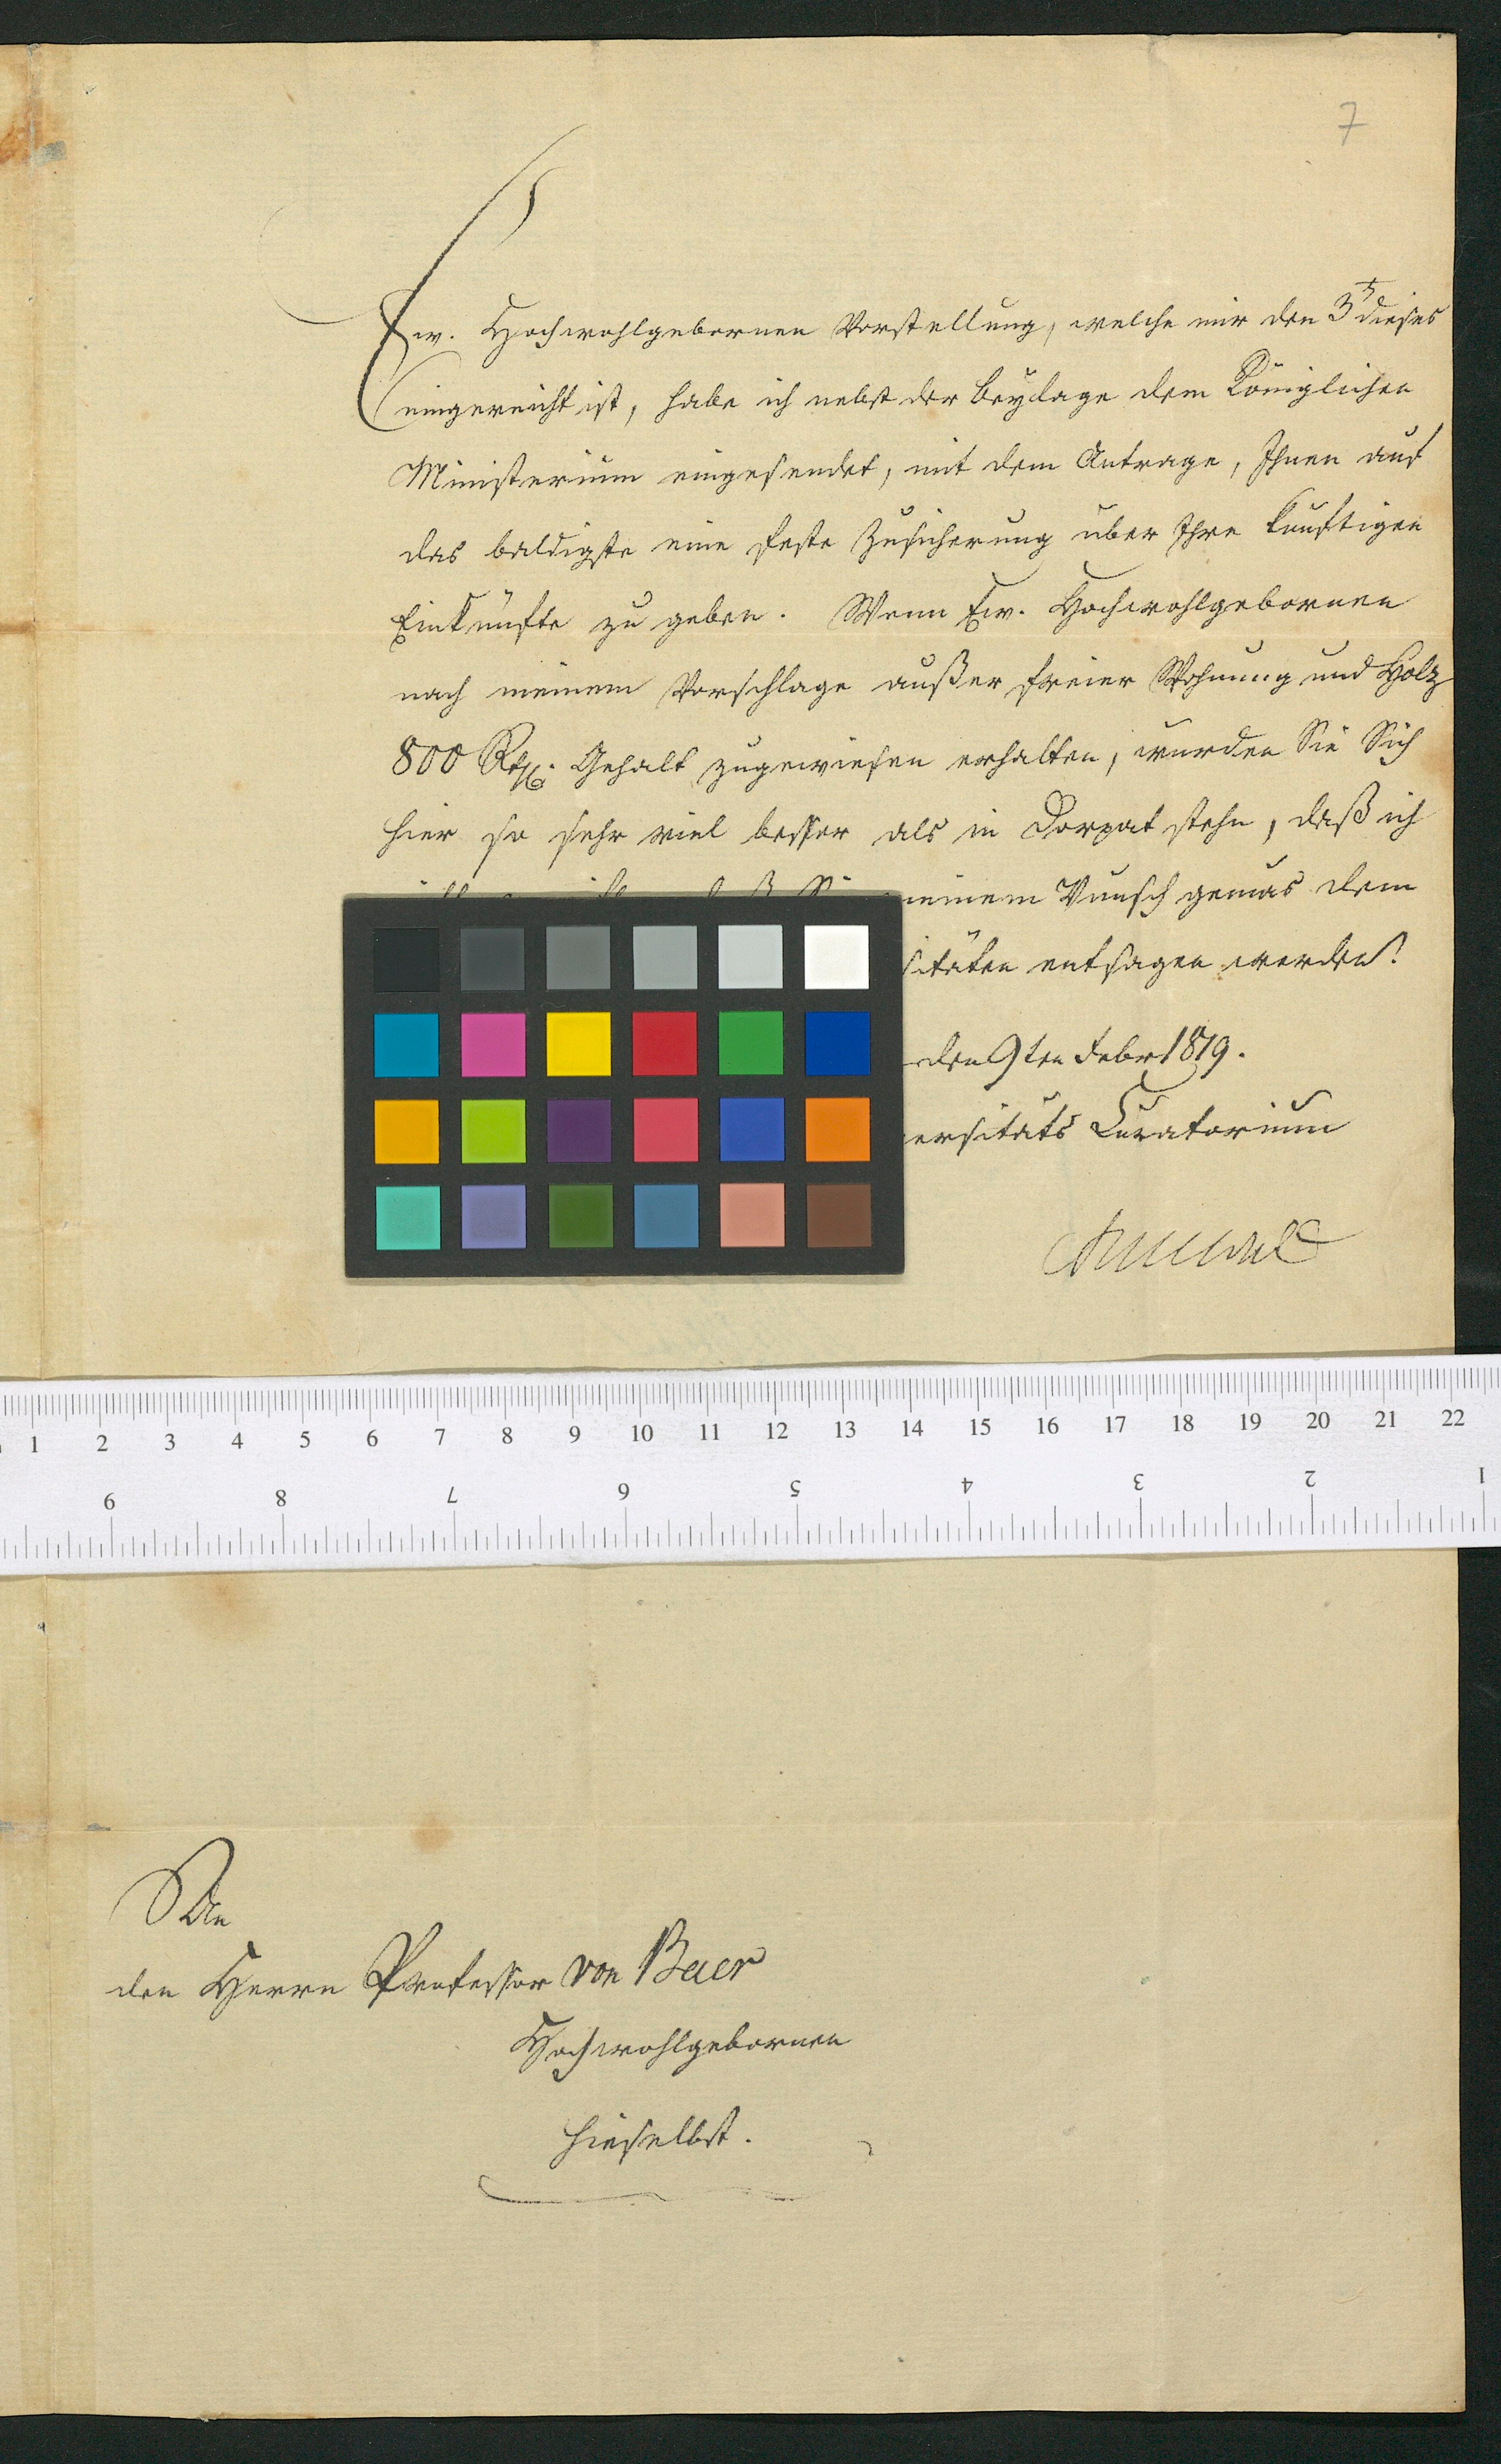 7
Ew. Hochwohlgebornen Vorstellung, welche mir den 3t dieses
eingereicht ist, habe ich nebst der Beylage dem Königlichen
Ministerium eingesendet, mit dem Antrage, Ihnen auf
das baldigste eine feste Zusicherung über Ihre künftigen
Einkünfte zu geben. Wenn Ew. Hochwohlgebornen
nach meinem Vorschlage außer freier Wohnung und Holz
800 Rth. Gehalt zugewiesen erhalten, würden Sie Sich
hier so sehr viel besser als in Dorpat stehn, daß ich
meinem Wunsch gemäs dem
sitäten entsagen werden!
den 9ten Febr 1819.
ersitäts Curatorium
1 2 3 4 5 6 7 8 9 10 11 12 13 14 15 16 17 18 19 20 21 22
9 8 7 6 5 4 3 2 1
An
den Herrn Professor von Baer
Hochwohlgebornen
hieselbst.